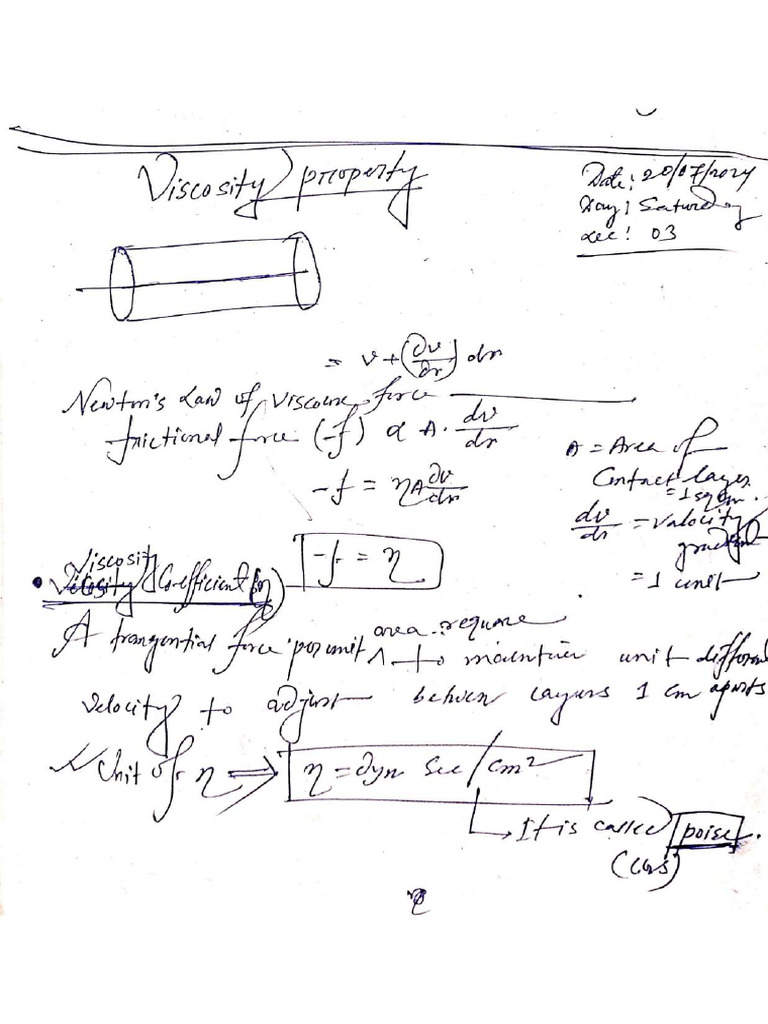 Viscosity prroperty
Date: 20/07/2024
Day: Saturday
Lec: 03
= v + (∂v/∂r) dr
Newton's Law of viscous force
frictional force (-f) ∝ A · dv/dr
-f = ηA ∂v/dr
A = Area of
Contact layer
= 1 sq cm.
dv/dr = valocity
gradient
= 1 unit
-f = η
Viscosity
• Viscosity Co-efficient (η)
A trangential force per unit area require
to maintain unit different
velocity to adjust between layers 1 cm aparts
Unit of η ⇒ η = dyn Sec/cm²
→ It is called poise.
(CGS)
η